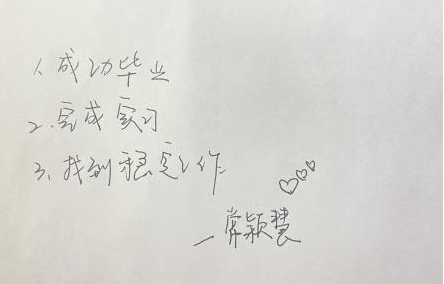 1.成功毕业
2.完成实习
3.找到稳定工作
—常颖慧